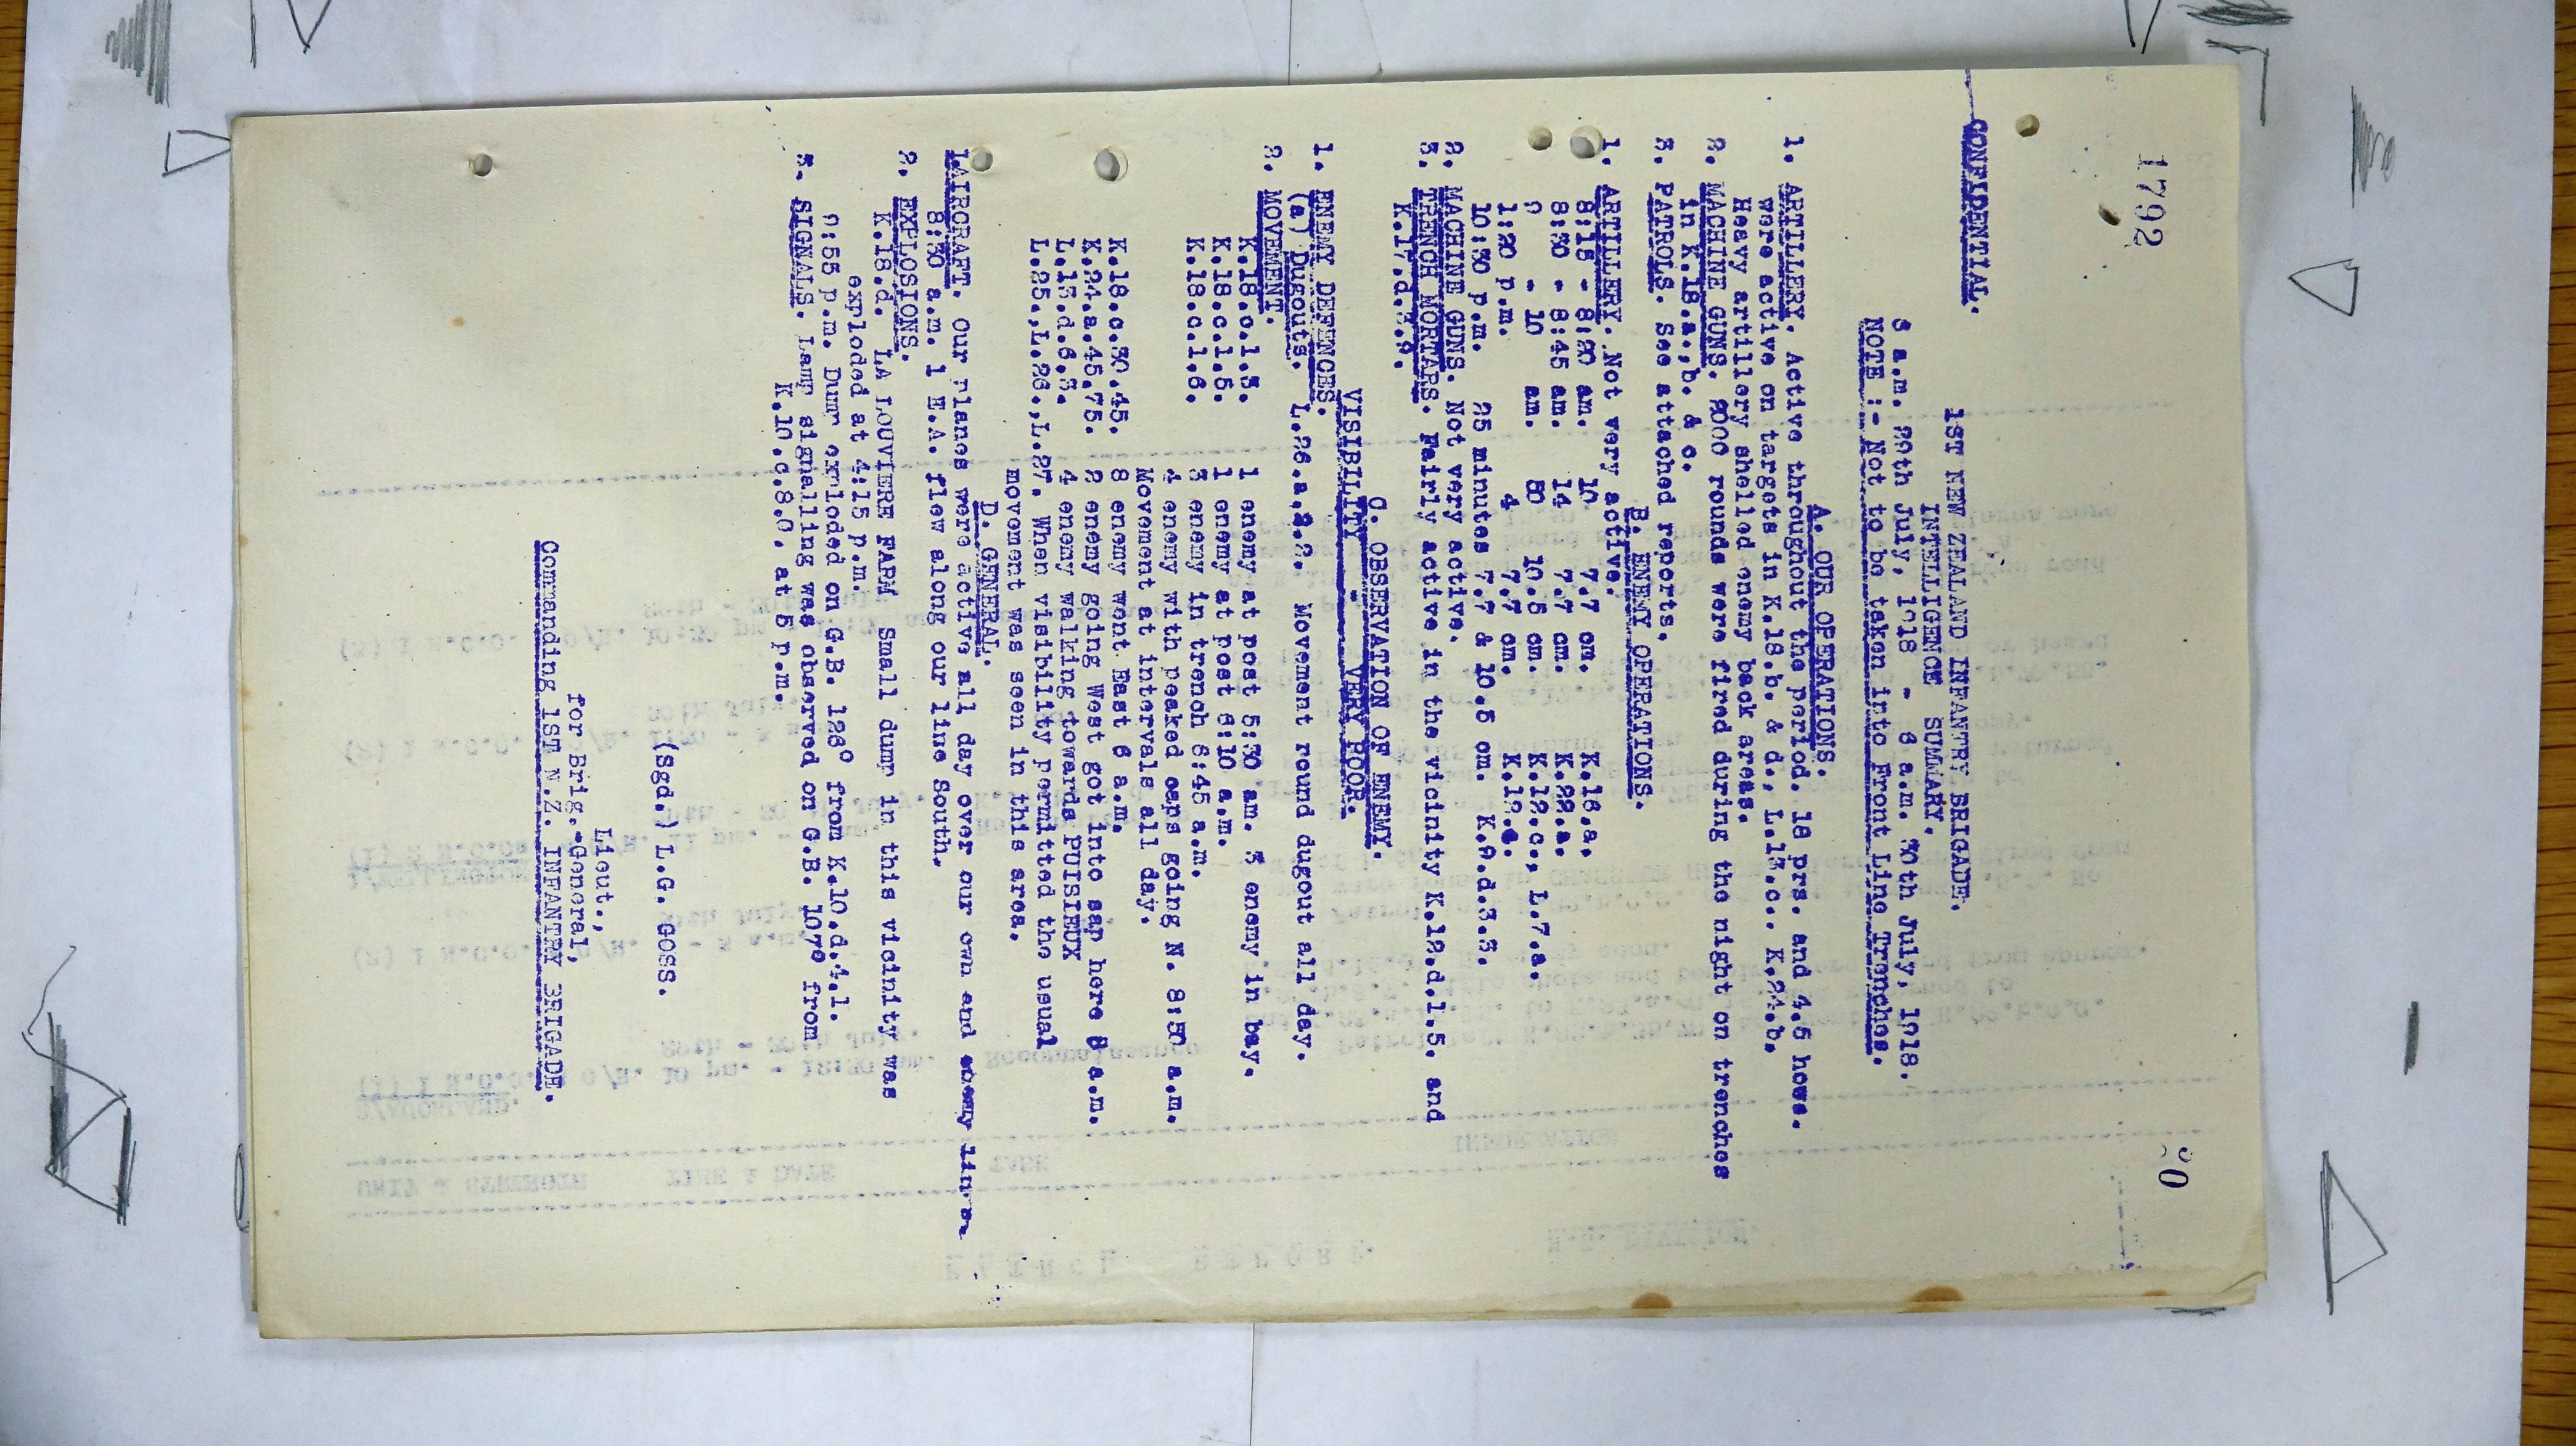 1792
20
CONFIDENTIAL.
1ST NEW ZEALAND INFANTRY BRIGADE.
INTELLIGENCE SUMMARY.
6 a.m. 29th July, 1918 - 6 a.m. 30th July, 1918.
NOTE :- Not to be taken into Front Line Trenches.
A. OUR OPERATIONS.
1. ARTILLERY. Active throughout the period. 18 prs. and 4.5 hows.
were active on targets in K.18.b. & d., L.13.c., K.24.b.
Heavy artillery shelled enemy back areas.
2. MACHINE GUNS. 2000 rounds were fired during the night on trenches
in K.18.a., b. & c.
3. PATROLS. See attached reports.
B. ENEMY OPERATIONS.
1. ARTILLERY. Not very active.
8:15 - 8:20 am. 10 7.7 cm. K.16.a.
8:30 - 8:45 am. 14 7.7 cm. K.22.a.
9 - 10 am. 50 10.5 cm. K.12.c., L.7.a.
1:20 p.m. 4 7.7 cm. K.12.
10:30 p.m. 25 minutes 7.7 & 10.5 cm. K.9.d.3.3.
2. MACHINE GUNS. Not very active.
3. TRENCH MORTARS. Fairly active in the vicinity K.12.d.1.5. and
K.17.d.3.9.
C. OBSERVATION OF ENEMY.
VISIBILITY - VERY POOR.
1. ENEMY DEFENCES.
(a) Dugouts. L.26.a.2.2. Movement round dugout all day.
2. MOVEMENT.
K.18.c.1.3. 1 enemy at post 5:30 am. 3 enemy in bay.
K.18.c.1.5. 1 enemy at post 6:10 a.m.
K.18.c.1.6. 3 enemy in trench 6:45 a.m.
4 enemy with peaked caps going N. 8:50 a.m.
Movement at intervals all day.
K.18.c.30.45. 8 enemy went East 6 a.m.
K.24.a.45.75. 2 enemy going West got into sap here 8 a.m.
L.13.d.6.3. 4 enemy walking towards PUISIEUX
L.25.,L.26.,L.27. When visibility permitted the usual
movement was seen in this area.
D. GENERAL.
1. AIRCRAFT. Our planes were active all day over our own and enemy lines.
8:30 a.m. 1 E.A. flew along our line South.
2. EXPLOSIONS.
K.18.d. LA LOUVIERE FARM Small dump in this vicinity was
exploded at 4:15 p.m.
9:55 p.m. Dump exploded on G.B. 128° from K.10.d.4.1.
3. SIGNALS. Lamp signalling was observed on G.B. 107° from
K.10.c.8.0. at 5 p.m.
(Sgd.) L.G. GOSS.
Lieut.,
for Brig.-General,
Commanding 1ST N.Z. INFANTRY BRIGADE.